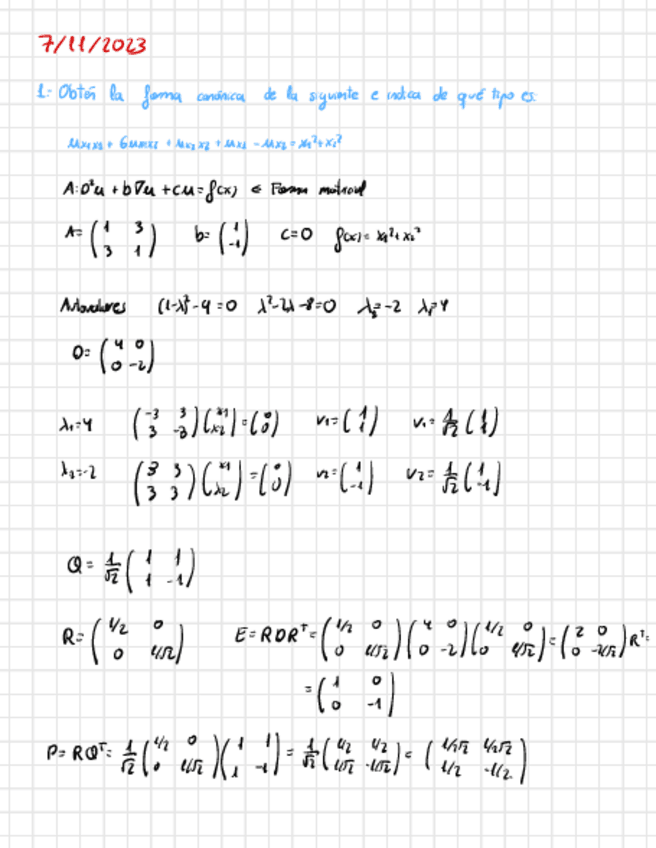 7/11/2023
1.- Obtén la forma canónica de la siguiente e indica de qué tipo es:
ux1x1 + 6ux1x2 + ux2x2 + ux1 - ux2 = x1² + x2²
A:D²u + b∇u + cu = f(x) ← Forma matricial
A = (1 3; 3 1) b = (1; -1) c = 0 f(x) = x1² + x2²
Autovalores (1-λ)² - 9 = 0 λ² - 2λ - 8 = 0 λ2 = -2 λ1 = 4
D = (4 0; 0 -2)
λ1 = 4 (-3 3; 3 -3)(x1; x2) = (0; 0) v1 = (1; 1) v1 = 1/√2 (1; 1)
λ2 = -2 (3 3; 3 3)(x1; x2) = (0; 0) v2 = (1; -1) v2 = 1/√2 (1; -1)
Q = 1/√2 (1 1; 1 -1)
R = (1/2 0; 0 1/√2) E = RDRᵀ = (1/2 0; 0 1/√2)(4 0; 0 -2)(1/2 0; 0 1/√2) = (2 0; 0 -2/√2) Rᵀ =
= (1 0; 0 -1)
P = RQᵀ = 1/√2 (1/2 0; 0 1/√2)(1 1; 1 -1) = 1/√2 (1/2 1/2; 1/√2 -1/√2) = (1/2√2 1/2√2; 1/2 -1/2)